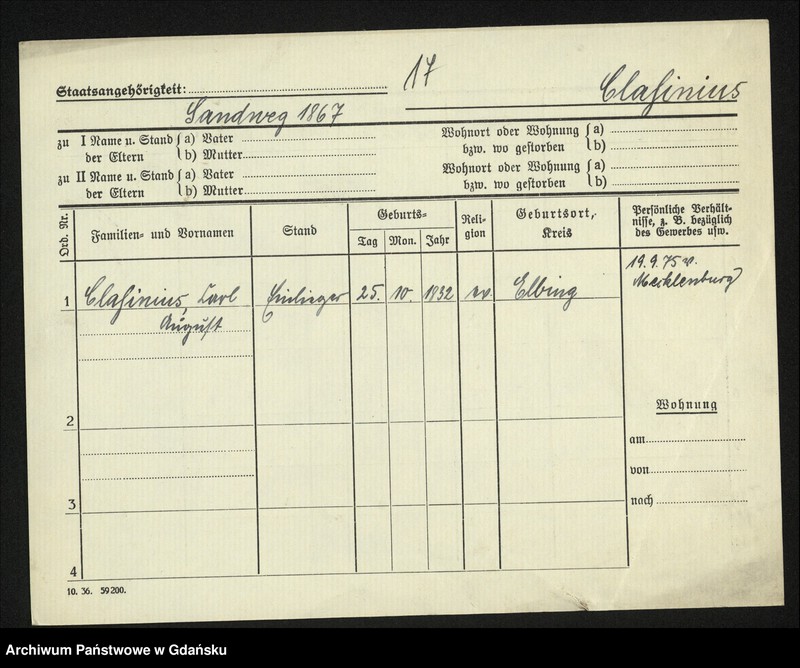 Staatsangehörigkeit: 17 Claßinius
Sandweg 1867
zu I Name u. Stand a) Vater Wohnort oder Wohnung a)
der Eltern b) Mutter bzw. wo gestorben b)
zu II Name u. Stand a) Vater Wohnort oder Wohnung a)
der Eltern b) Mutter bzw. wo gestorben b)
Ord. Nr.
Familien- und Vornamen
Stand
Geburts-
Tag Mon. Jahr
Reli-
gion
Geburtsort,
Kreis
Persönliche Verhält-
nisse, z. B. bezüglich
des Gewerbes usw.
1 Claßinius, Carl Einlieger 25. 10. 1832 ev. Elbing
August
19.9.75 v.
Mecklenburg
2
3
4
Wohnung
am
von
nach
10. 36. 59200.
Archiwum Państwowe w Gdańsku